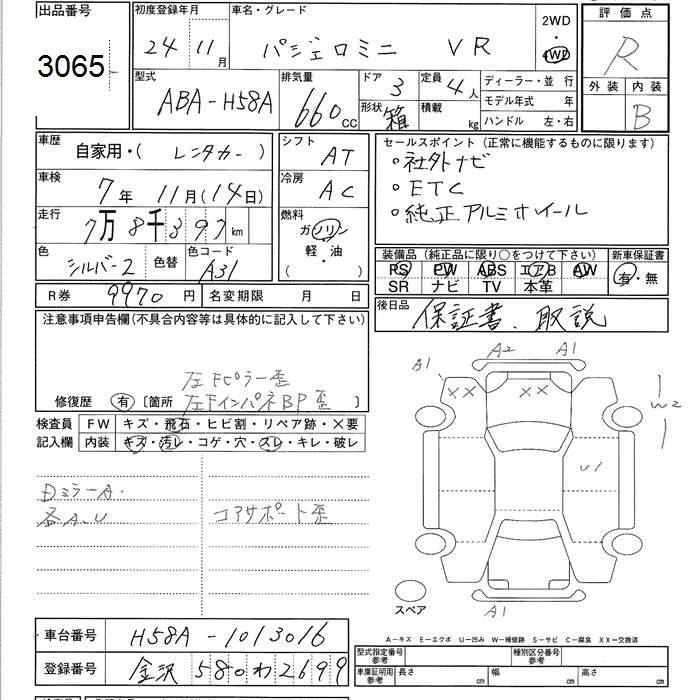 出品番号 初度登録年月 車名・グレード 2WD 評価点
3065 24年 11月 パジェロミニ VR 4WD R
型式 排気量 ドア 3 定員 4人 ディーラー・並 行 外装 内装
ABA-H58A 660cc 形状 箱 積載 kg モデル年式 年 B
ハンドル 左・右
車歴 自家用・( レンタカー ) シフト AT セールスポイント (正常に機能するものに限ります)
車検 7年 11月(14日) 冷房 AC ・社外ナビ
・ETC
走行 7万8千397km 燃料 ガソリン ・純正アルミホイール
軽・油
色 シルバー2 色替 色コード A31 ( ) 装備品 (純正品に限り○をつけて下さい) 新車保証書
PS PW ABS エアB AW 有・無
SR ナビ TV 本革
R券 9970円 名変期限 月 日 後日品 保証書、取説
注意事項申告欄(不具合内容等は具体的に記入して下さい)
左Fピラー歪
修復歴 有 [箇所 左FインパネBP歪 ]
検査員 FW キズ・飛石・ヒビ割・リペア跡・×要
記入欄 内装 キズ・汚レ・コゲ・穴・スレ・キレ・破レ
A1 A2 A1
XX XX W2
U1
ミラーA.
各A.U コアサポート歪
スペア A1
A-キズ E-エクボ U-凹み W-補修跡 S-サビ C-腐食 XX-交換済
車台番号 H58A-1013016 型式指定番号 参考 種別区分番号 参考
登録番号 金沢 580わ2699 車庫証明用 参考 長さ cm 幅 cm 高さ cm